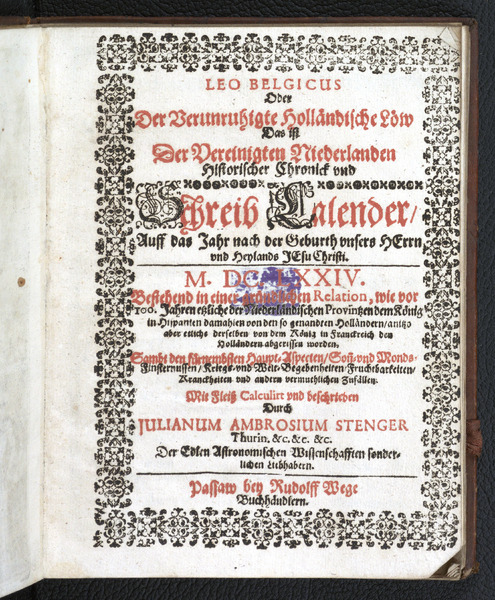 LEO BELGICUS
Oder
Der Verunruhigte Holländische Löw
Das ist
Der Vereinigten Niederlanden
Historischer Chronick vnd
Schreib Calender/
Auff das Jahr nach der Geburth vnsers HErrn
vnd Heylands JEsu Christi.
M. DC. LXXIV.
Bestehend in einer gründlichen Relation, wie vor
100. Jahren etzliche der Niederländischen Provintzen dem König
in Hispanien damahlen von den so genandten Holländern/anitzo
aber etliche derselben von dem König in Franckreich den
Holländern abgerissen worden.
Sambt den fürnembsten Haupt-Aspecten/ Soñ-vnd Monds-
Finsternussen/ Kriegs-vnd Welt-Begebenheiten/Fruchtbarkeiten/
Kranckheiten vnd andern vermuthlichen Zufällen.
Mit Fleiß Calculirt vnd beschrieben
Durch
JULIANUM AMBROSIUM STENGER
Thurin. &c. &c. &c.
Der Edlen Astronomischen Wissenschafften sonder-
lichen Liebhabern.
Passaw bey Rudolff Wege
Buchhändlern.